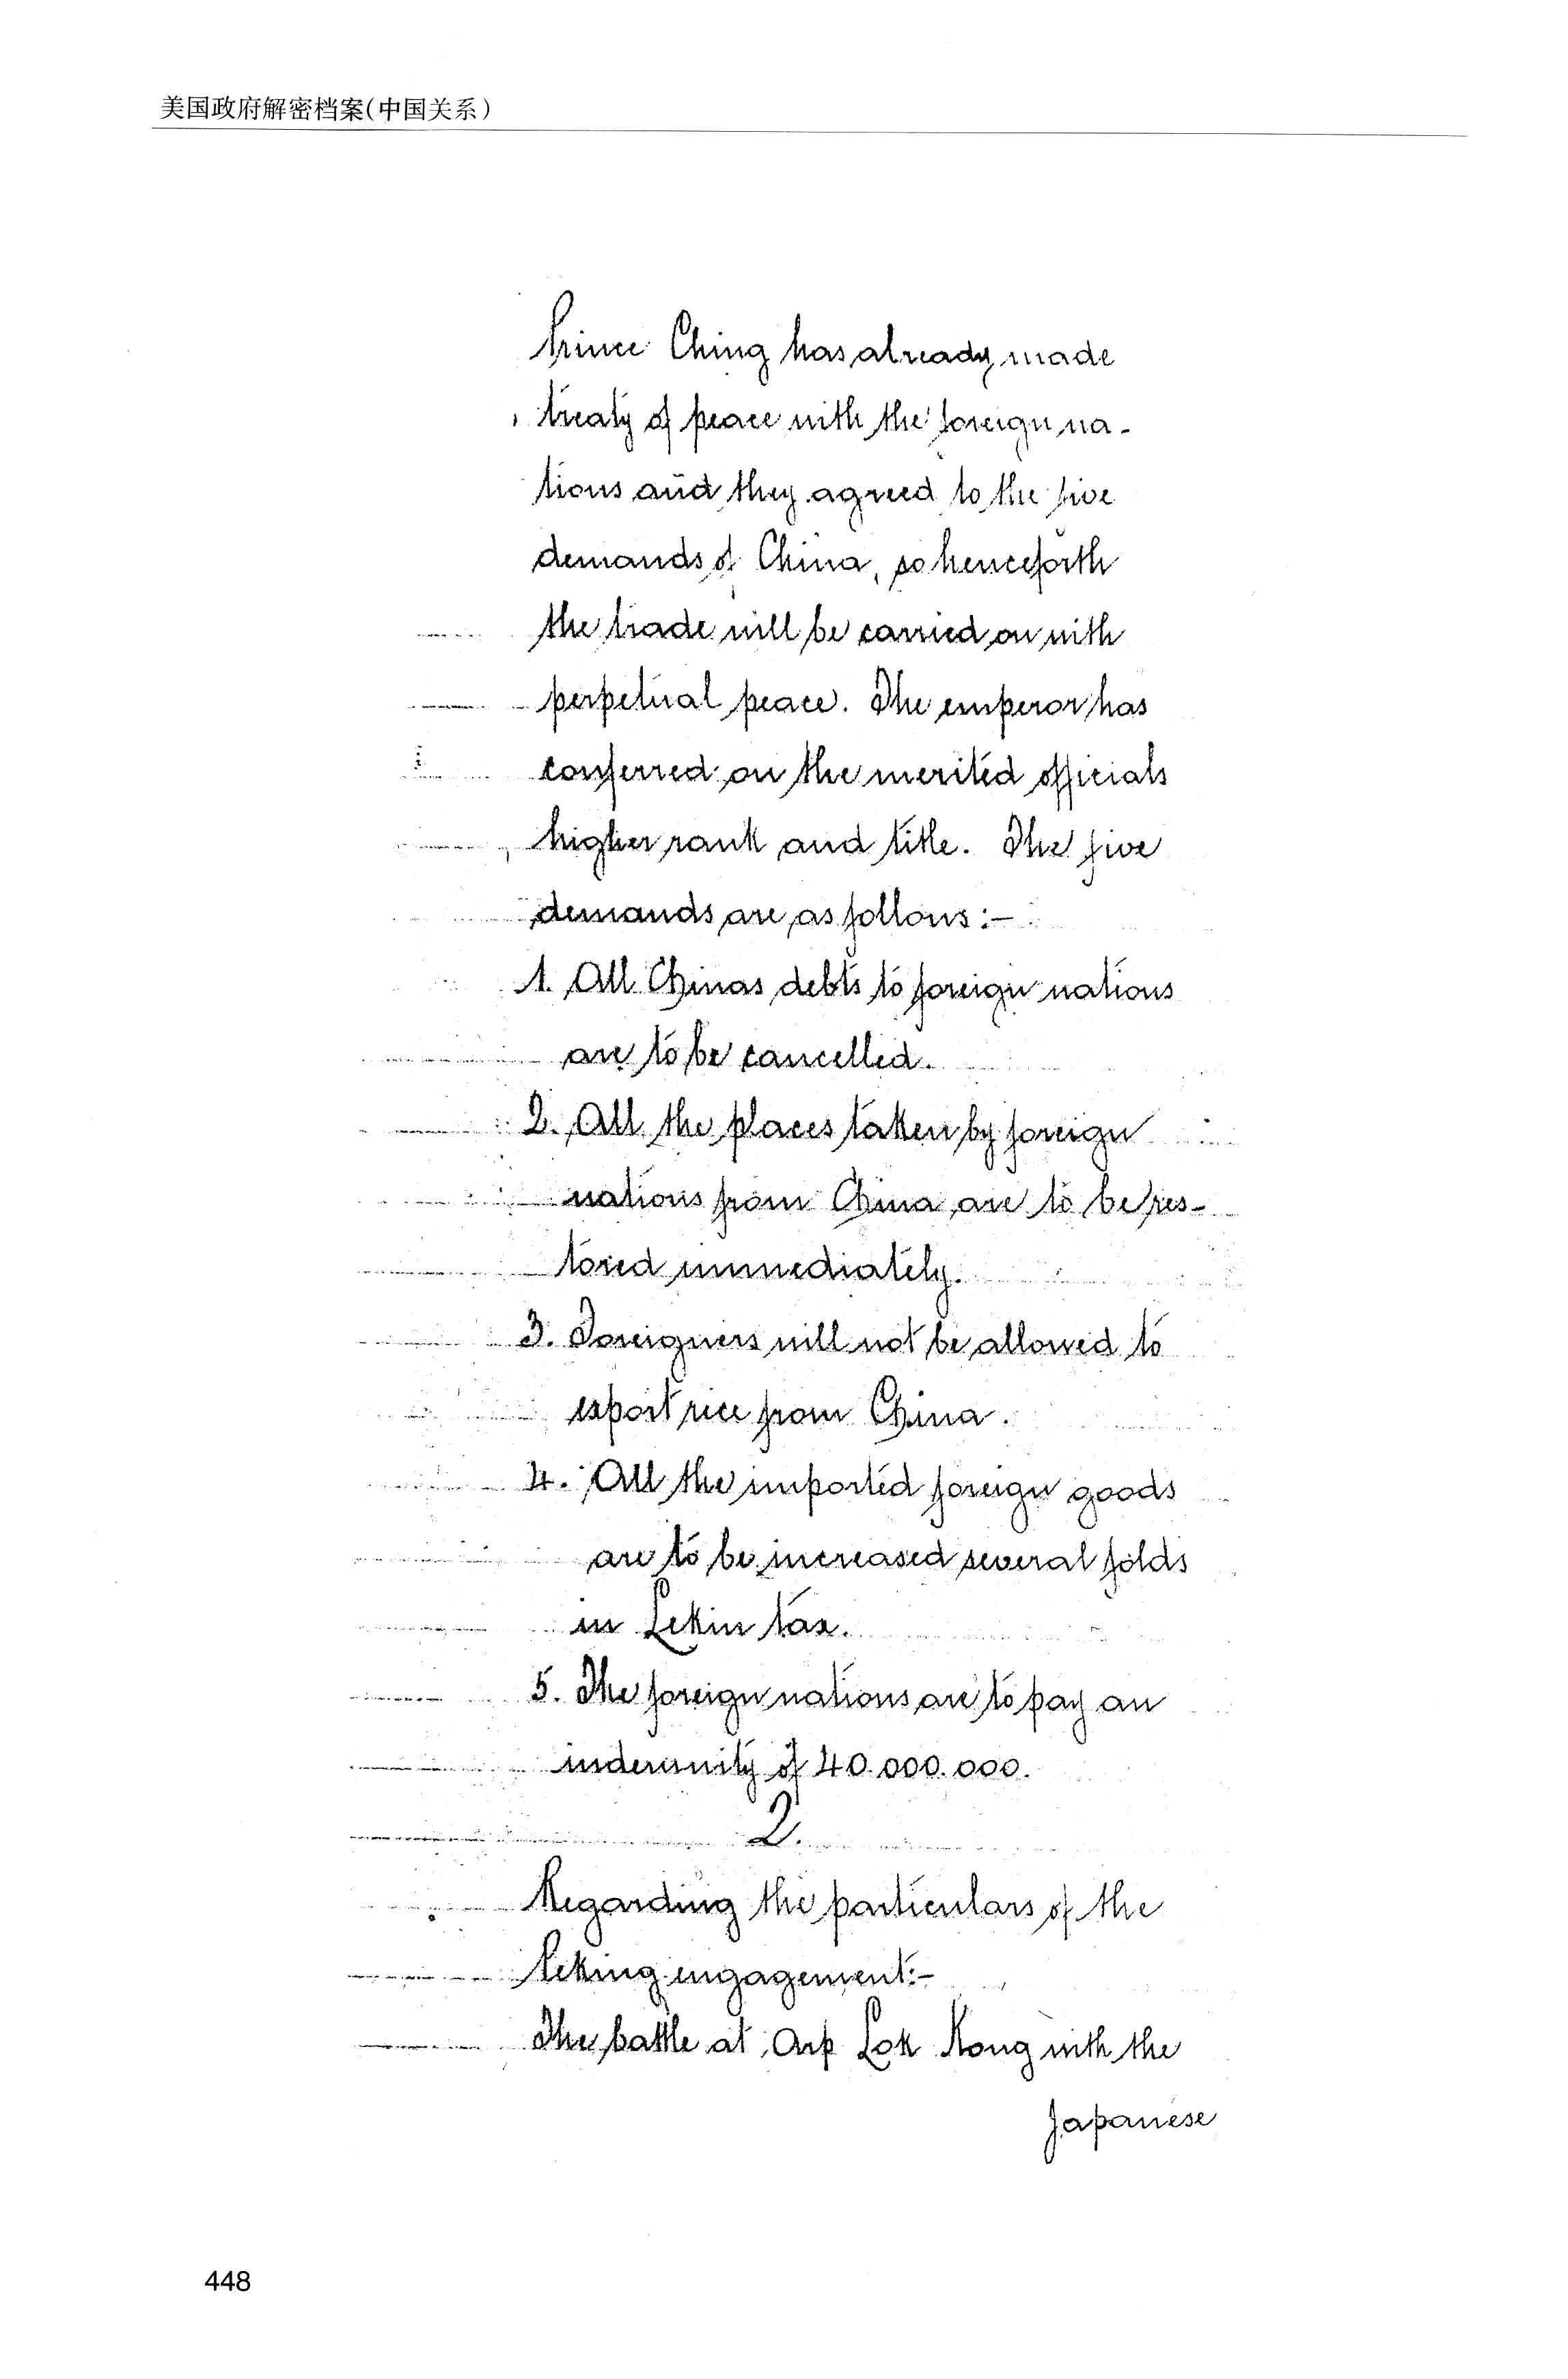 美国政府解密档案(中国关系)
Prince Ching has already made
treaty of peace with the foreign na-
tions and they agreed to the five
demands of China, so henceforth
the trade will be carried on with
perpetual peace. The emperor has
conferred on the merited officials
higher rank and title. The five
demands are as follows:-
1. All Chinas debts to foreign nations
are to be cancelled.
2. All the places taken by foreign
nations from China are to be res-
tored immediately.
3. Foreigners will not be allowed to
export rice from China.
4. All the imported foreign goods
are to be increased several folds
in Lekin tax.
5. The foreign nations are to pay an
indemnity of 40.000.000.
2.
Regarding the particulars of the
Peking engagement:-
The battle at Lok Kong with the
Japanese
448